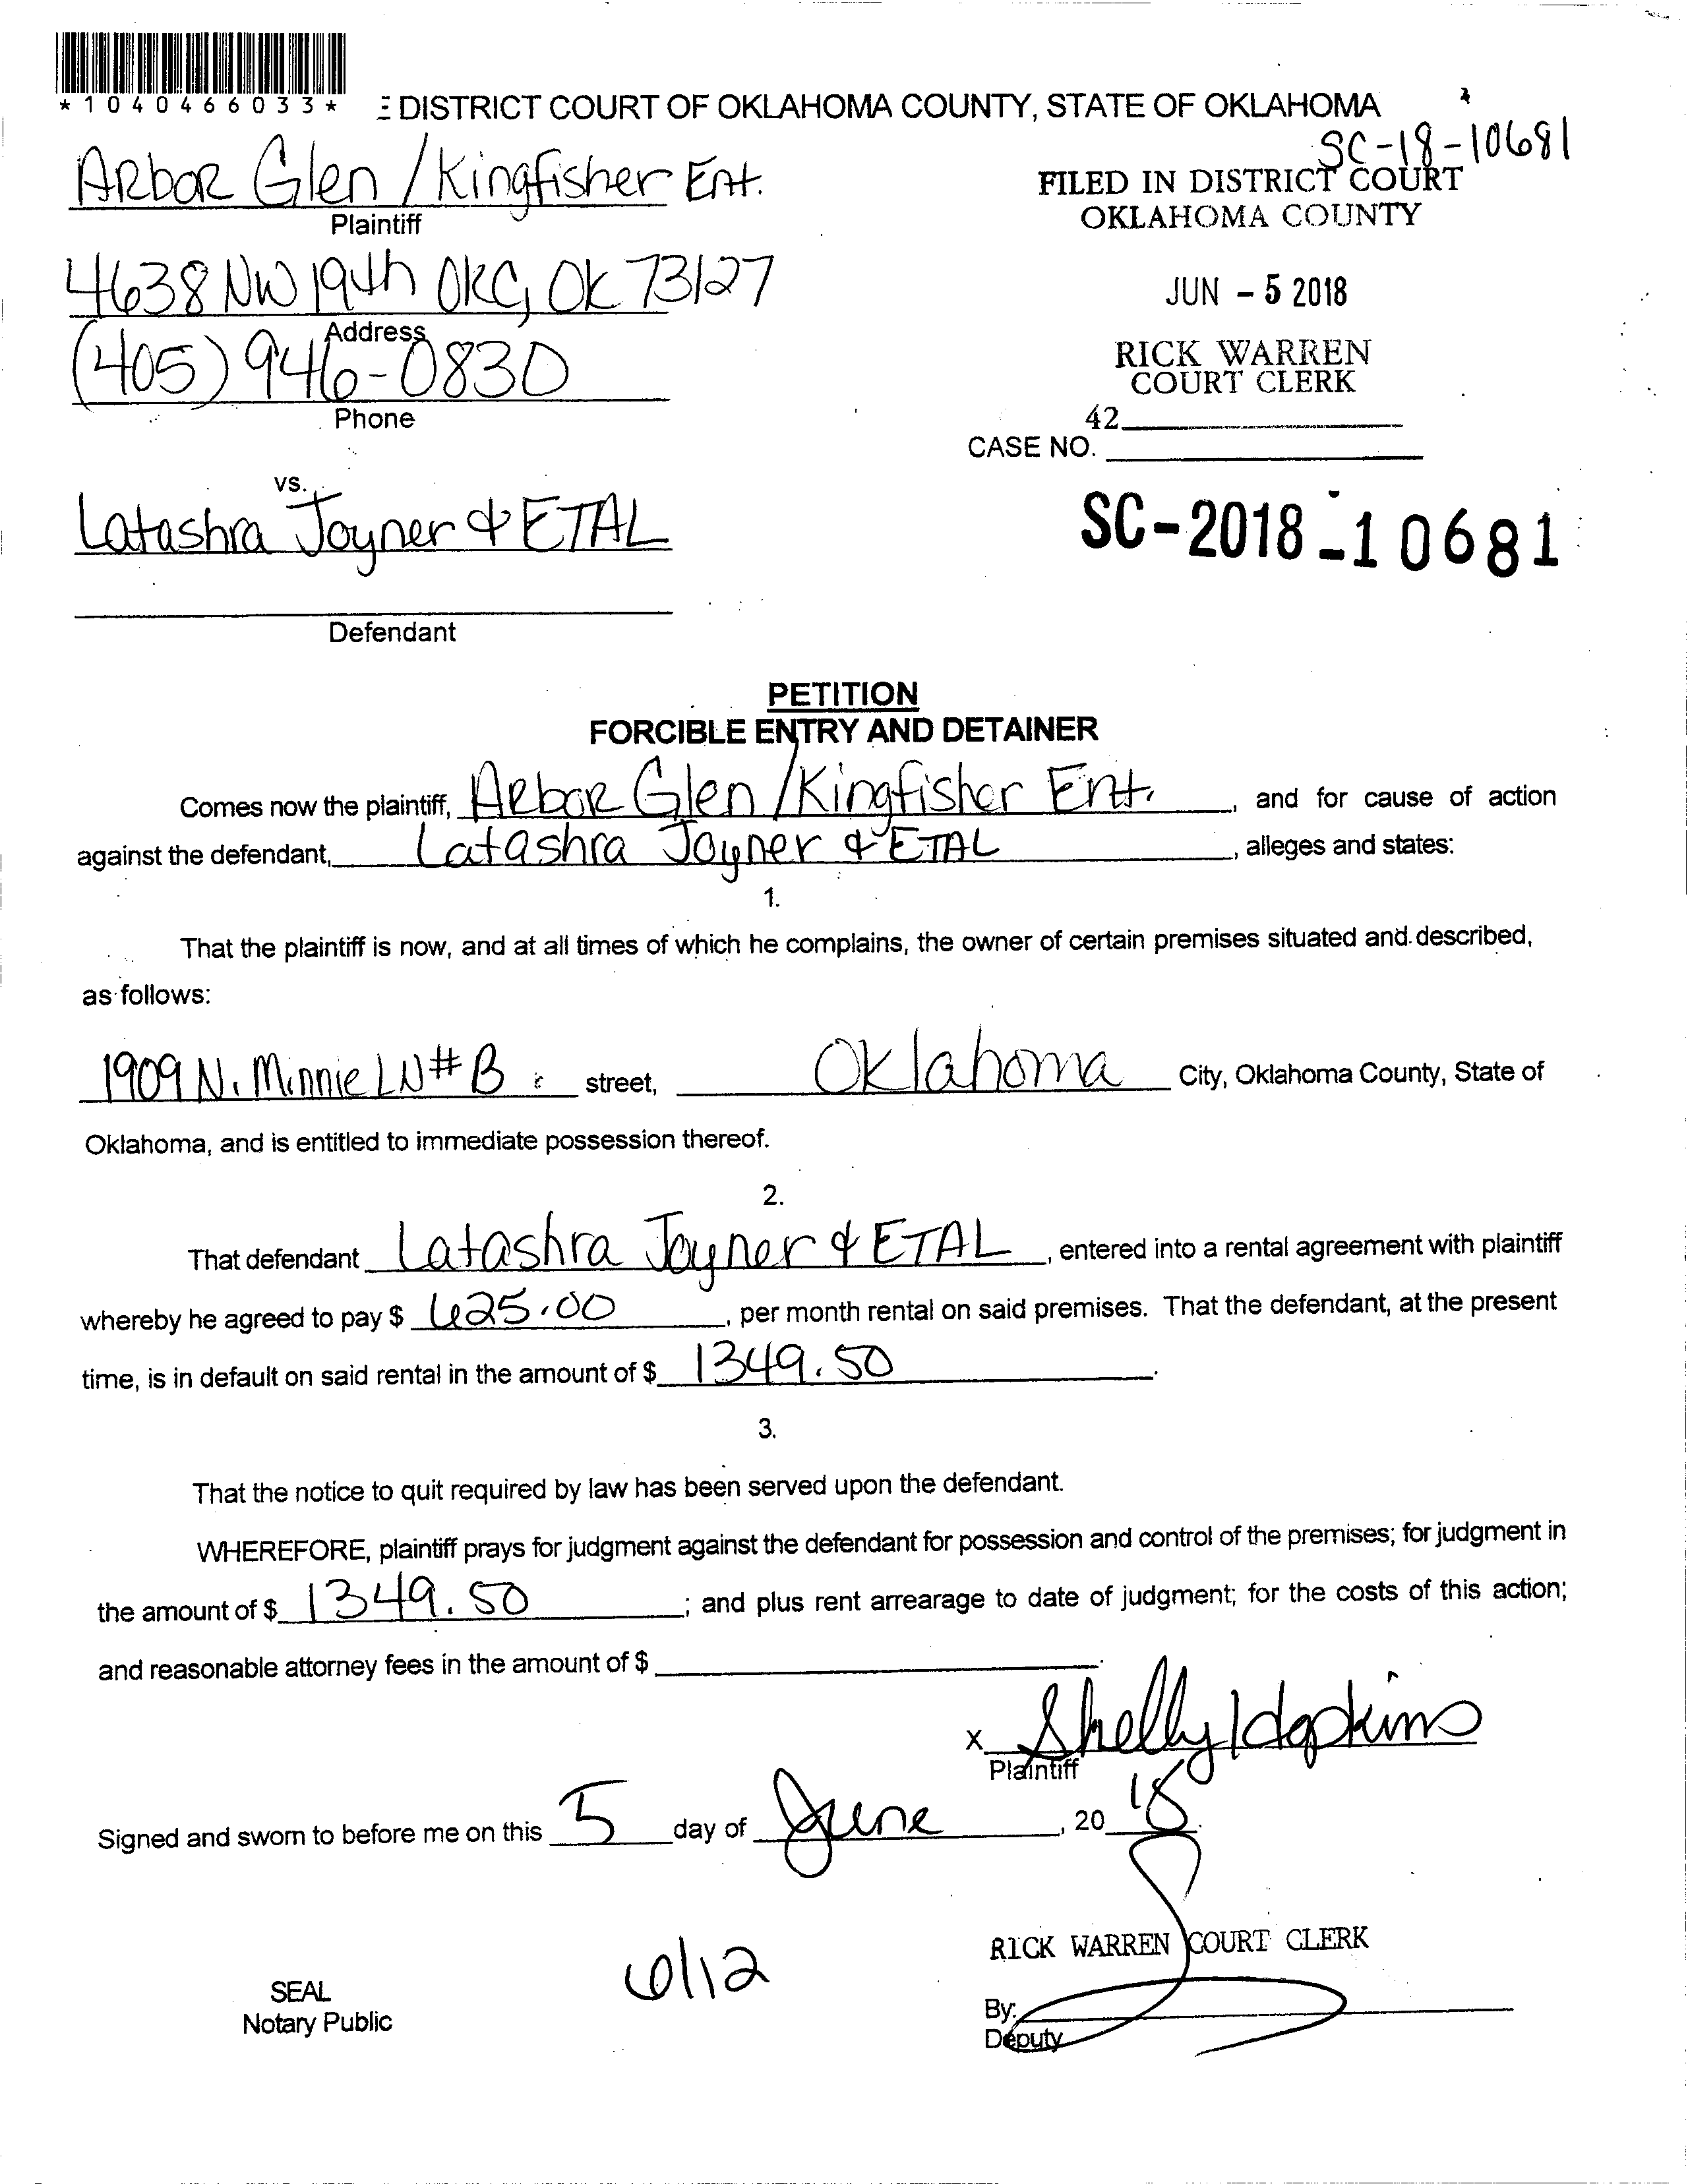 *1040466033*
DISTRICT COURT OF OKLAHOMA COUNTY, STATE OF OKLAHOMA
SC-18-10681
Arbor Glen / Kingfisher Ent.
Plaintiff
FILED IN DISTRICT COURT
OKLAHOMA COUNTY
4638 NW 19th OKC, OK 73127
Address
JUN - 5 2018
(405) 946-0830
Phone
RICK WARREN
COURT CLERK
42
CASE NO.
vs.
Latashra Joyner & ETAL
SC-2018-10681
Defendant
PETITION
FORCIBLE ENTRY AND DETAINER
Comes now the plaintiff, Arbor Glen / Kingfisher Ent., and for cause of action
against the defendant, Latashra Joyner & ETAL, alleges and states:
1.
That the plaintiff is now, and at all times of which he complains, the owner of certain premises situated and described,
as follows:
1909 N. Minnie LN # B street, Oklahoma City, Oklahoma County, State of
Oklahoma, and is entitled to immediate possession thereof.
2.
That defendant Latashra Joyner & ETAL, entered into a rental agreement with plaintiff
whereby he agreed to pay $ 625.00, per month rental on said premises. That the defendant, at the present
time, is in default on said rental in the amount of $ 1349.50.
3.
That the notice to quit required by law has been served upon the defendant.
WHEREFORE, plaintiff prays for judgment against the defendant for possession and control of the premises; for judgment in
the amount of $ 1349.50; and plus rent arrearage to date of judgment; for the costs of this action;
and reasonable attorney fees in the amount of $
x Shelly Hopkins
Plaintiff
Signed and sworn to before me on this 5 day of June, 20 18.
RICK WARREN COURT CLERK
6/12
SEAL
Notary Public
By:
Deputy